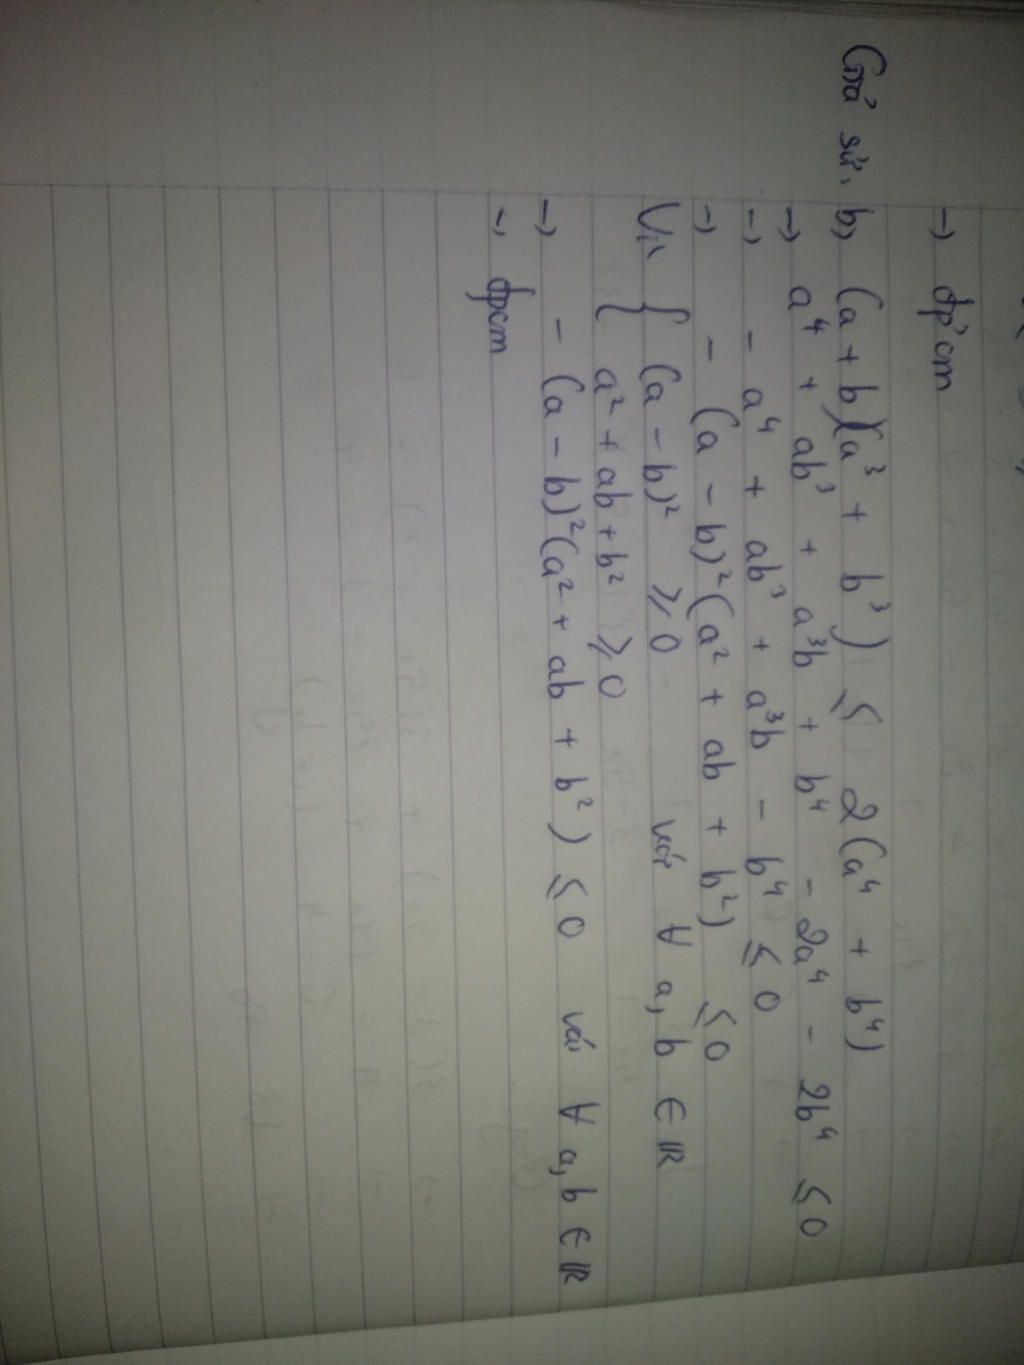 → đpcm
Giả sử. b, (a + b)(a³ + b³) ≤ 2(a⁴ + b⁴)
→ a⁴ + ab³ + a³b + b⁴ - 2a⁴ - 2b⁴ ≤ 0
→ - a⁴ + ab³ + a³b - b⁴ ≤ 0
→ - (a - b)²(a² + ab + b²) ≤ 0
Vì { (a - b)² ≥ 0 với ∀ a, b ∈ ℝ
a² + ab + b² ≥ 0
→ - (a - b)²(a² + ab + b²) ≤ 0 với ∀ a, b ∈ ℝ
→ đpcm